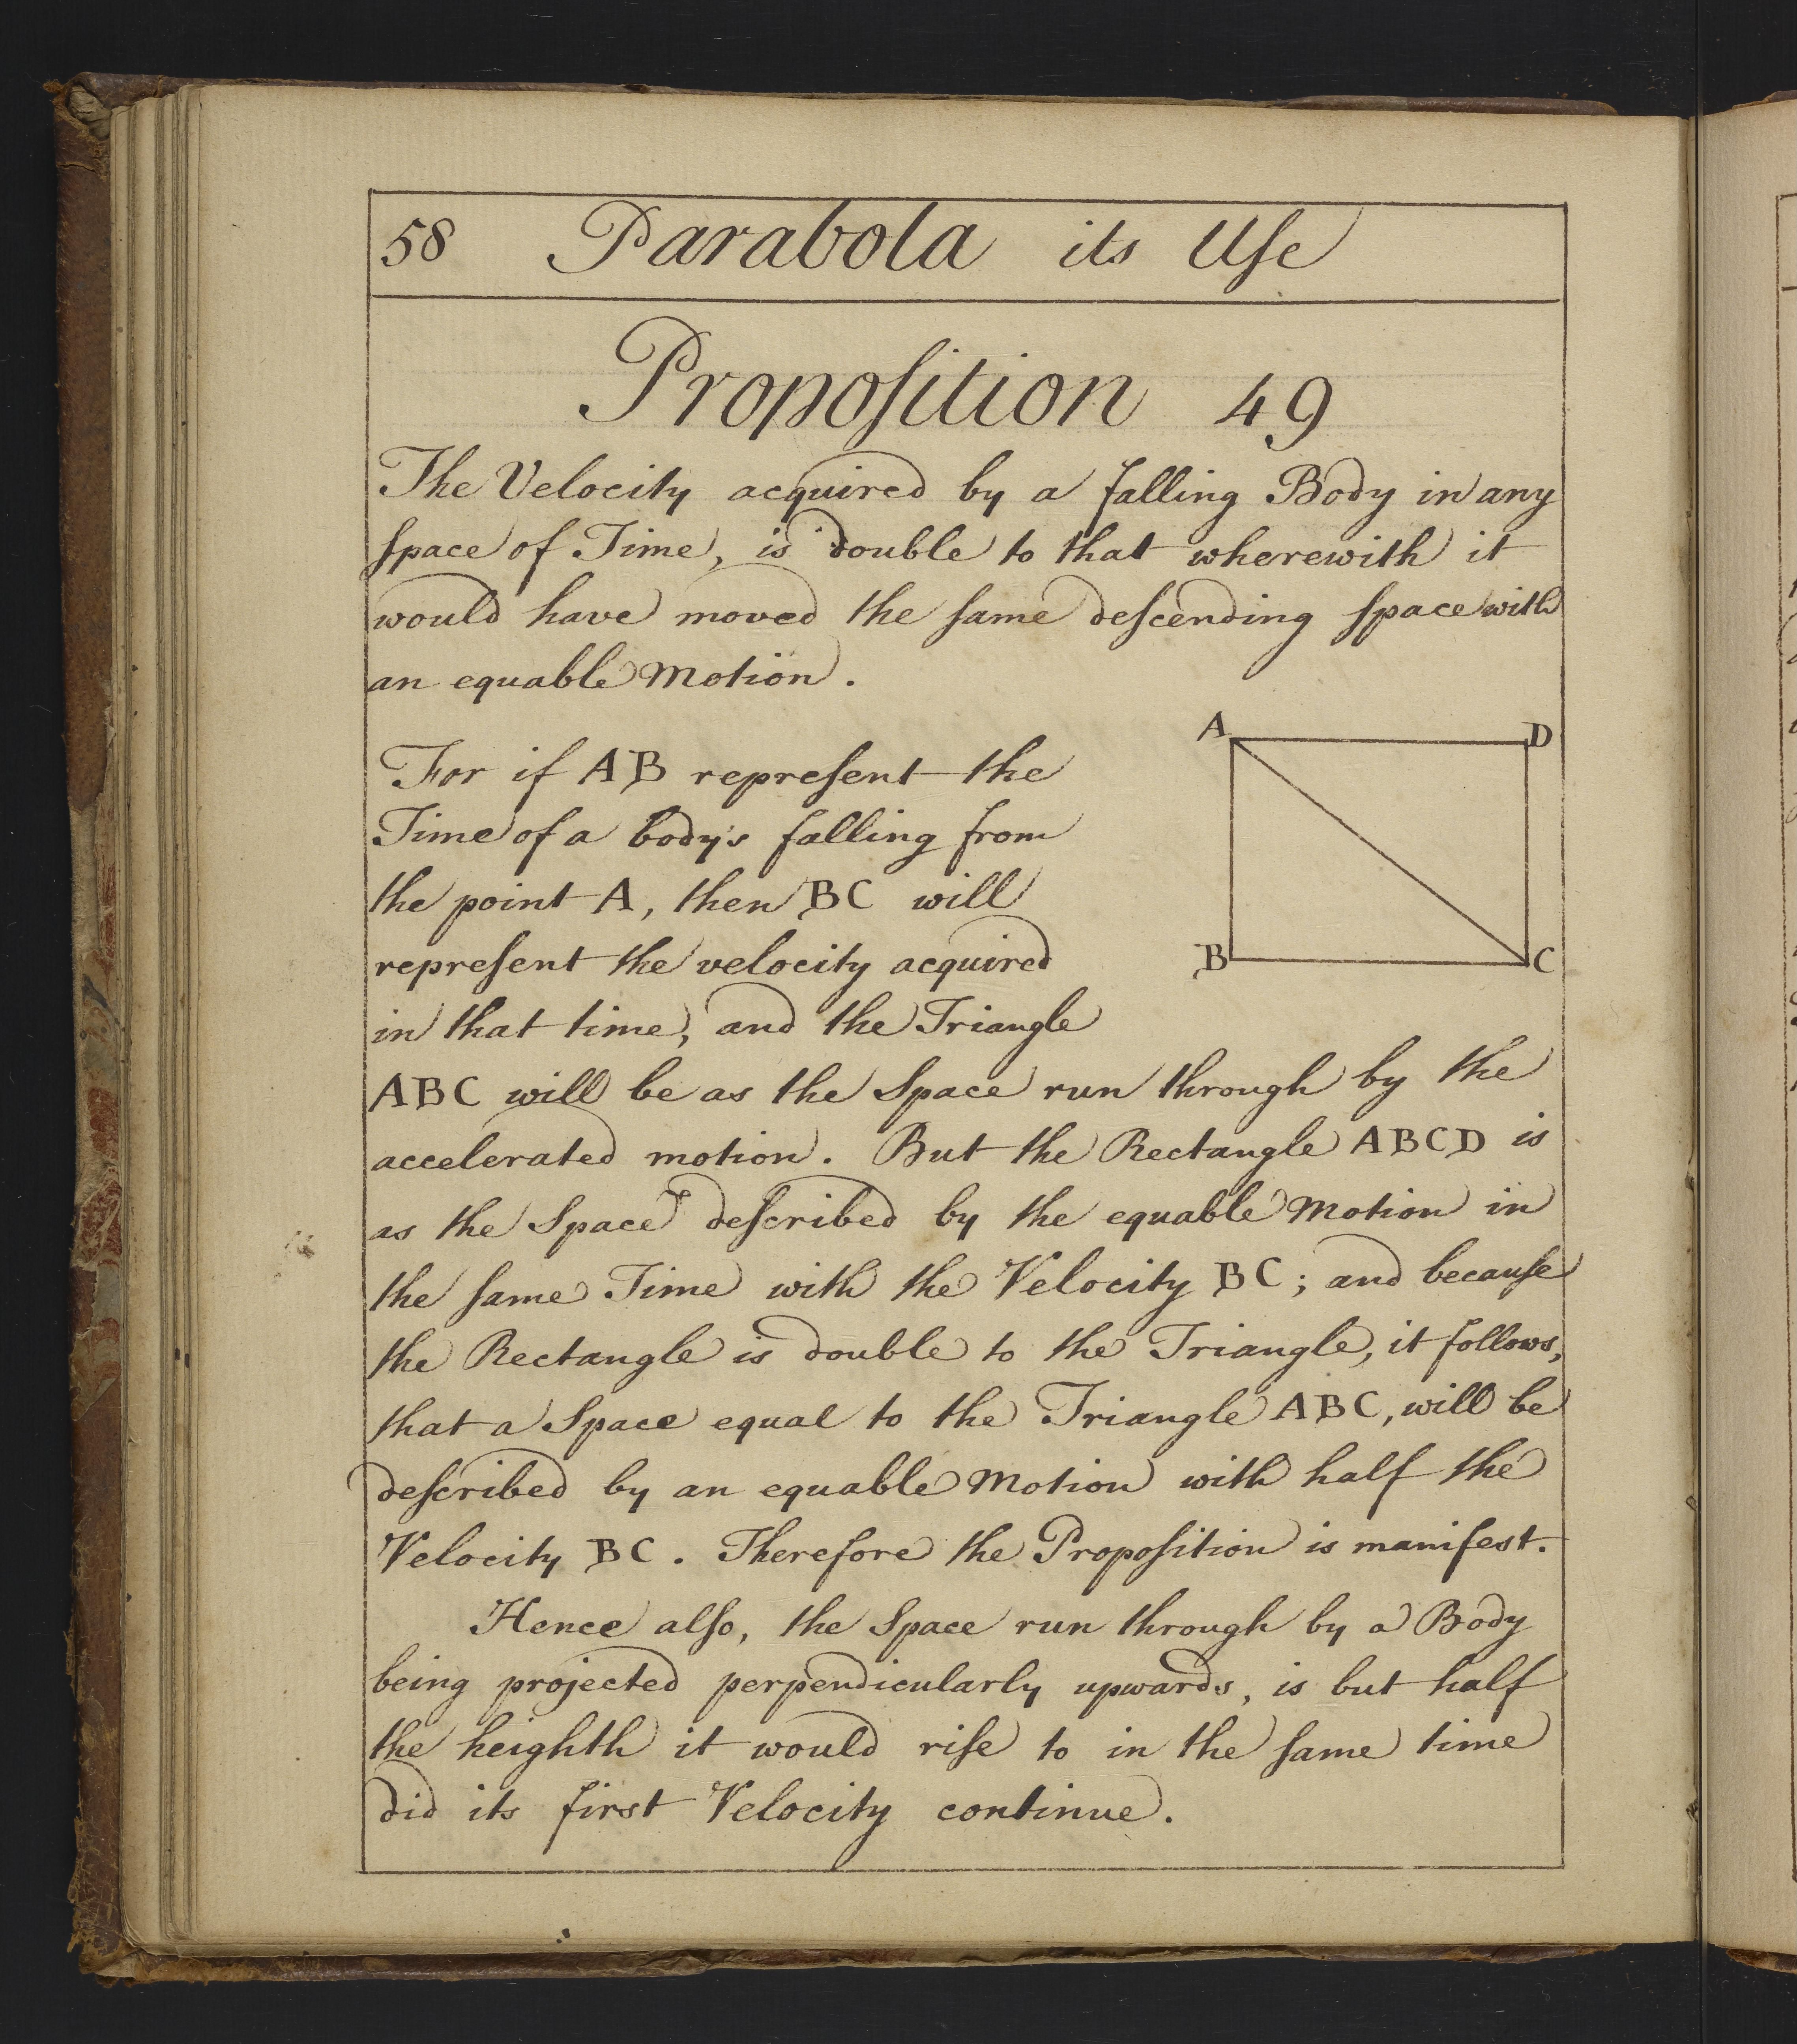 58 Parabola its Uſe
Propoſition 49
The Velocity acquired by a falling Body in any
ſpace of Time, is double to that wherewith it
would have moved the ſame deſcending ſpace with
an equable Motion.
A D
For if AB repreſent the
Time of a body's falling from
the point A, then BC will
repreſent the velocity acquired
B C
in that time, and the Triangle
ABC will be as the Space run through by the
accelerated motion. But the Rectangle ABCD is
as the Space deſcribed by the equable Motion in
the ſame Time with the Velocity BC; and becauſe
the Rectangle is double to the Triangle, it follows,
that a Space equal to the Triangle ABC, will be
deſcribed by an equable Motion with half the
Velocity BC. Therefore the Propoſition is manifest.
Hence alſo, the Space run through by a Body
being projected perpendicularly upwards, is but half
the heighth it would riſe to in the ſame time
did its first Velocity continue.